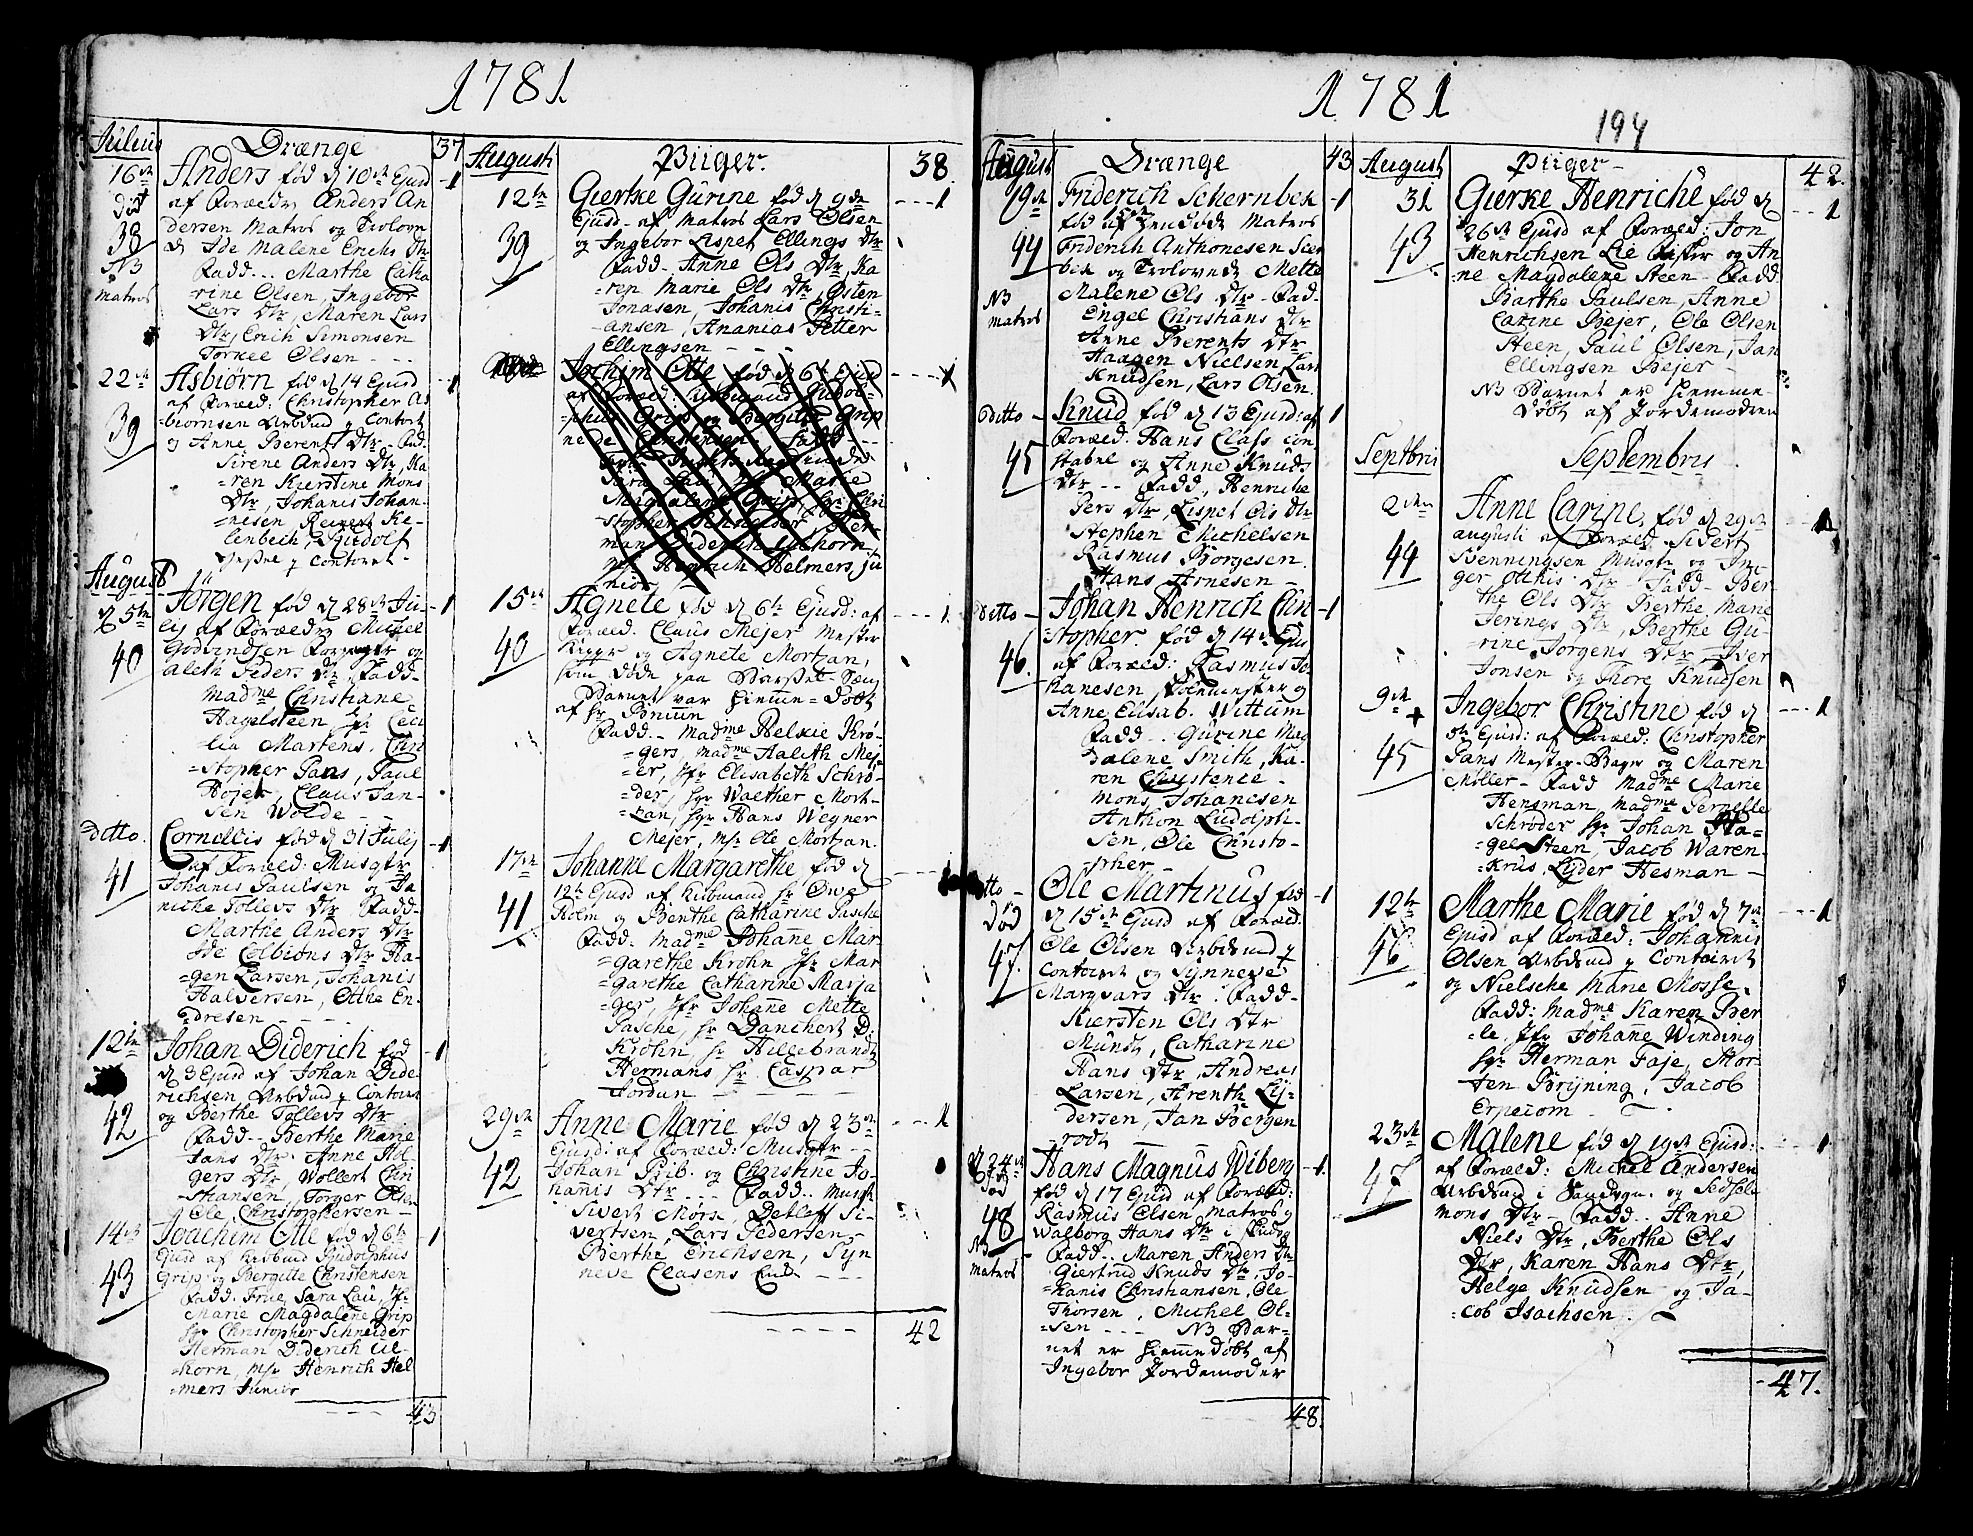 1781
Julius
Drænge
37
16de
Anders fød d 10de Ejusd
1
død
af Foræld Anders An
38
dersen Matros og Trolov
d. Ide Malene Erichs Dtr
NB
Fadd. . . Marthe Catha
matros
rine Olsen, Ingebor
Lars Dtr, Maren Lars
Dtr, Erich Simonsen
Torkel Olsen - - -
22de
Asbiørn fød d 14 Ejusd
1
af Foræld: Christopher As
39
biørnsen Arbdmd p Contort
og Anne Berents Dtr - Fad:
Sirene Anders Dtr, Ka
=ren Kierstine Mons
Dtr, Johanis Johan-
=nesen, Reinert Ke-
lenbech, Rudolf
p Contoret -
August
d 5te
Jörgen fød d 28de Ju-
1
lij af Forældre Michel
Godvindsen og
40
Aleth Peders Dtr, Fadd-
Madme Christiane
Hagelsteen, Jfr Ceci
lia Martens, Chri
=stopher Pans, Paul
Højer, Claus Jan-
sen Wolde - -
Ditto.
Cornellis fød d 31 Julij
1
af Foræld: Musqtr
41
Johanis Paulsen og Ja
niche Tollevs Dtr Fadd-
Marthe Anders Dtr
Ide Colbiøns Dtr, Ha-
=gen Larsen, Johanis
Halversen, Otthe En-
=dresen - - - -
12te
Johan Diderich fød
1
d 3 Ejusd af Johan Dide
richsen Arbdmd p Contort
42
og Berthe Tollevs Dtr
Fadd - Berthe Marie
Jans Dtr. Anne Hol-
gers Dtr, Wollert Chri
-sthansen, Torger Olsen
Ole, Christophersen -
14de
Joachim Otte fød d 6te
1
Ejusd af Kiøbmd Rudolphus
43
Grip og Bergitte Christensen
Fadd. Frue, Sara Lau, Jfr
Marie Magdalene Grip
hr Christopher Schneider
Herman Diderich Ue-
=horn, mr Henrich Hel
=mers Junior
43
Augusti
Piiger.
38
12te
Giertke Gurine fød d 9de
1
Ejusd - af Matros Lars Olsen
39
og Ingebor Lispet Ellings Dtr
Fadd - Anne Ols Dtr, Ka
=ren Marie Ols Dtr, Østen
Jonasen, Johanis Christi-
-ansen, Ananias Petter
Ellingsen - - -
Jochim Otte fød d 6te Ejusd
af Foræld: Kiøbmand Rudol-
=phus Grip og Bergitte Grip
nede Christensen. Fadd - - -
Magdalene Grip, hr Chri
-stopher Schneider Her-
man Diderich Uehorn
mr Henrich Helmers, ju
nior
15de
Agnete fød d 6te Ejusd: af
1
Foræld. Claus Mejer Mester
40
og Agnete Mortzan,
som døde paa Barsel=Seng
Barnet var hiemme=Døbt
af hr Bruun
Fadd - Madme Helxie Krø-
=gers, Madme Haleth Mej-
=er, Jfr Elisabeth Schrø-
=der, hr Walther Mort-
=zan, hr Hans Wegner
Mejer, mr Ole Mortzan.
17de
Johanne Margarethe, fød d
1
12te Ejusd af Kiøbmand hr Owe
41
Holm og Berthe Catharine Pasche
Fadd: Madme Johanne Mar
=garethe Krohn Jfr Mar
=garethe Catharine Marja
=ger, Jfr Johanne Mette
Pasche, hr Danchert D:
Krohn, hr Hillebrandt
Hermans hr Caspar
Jordan - - - -
29de
Anne Marie fød d 23de
1
Ejusd: af Foræld: Musqtr - -
42
Johan Bib. og Christine Jo-
hannis Dtr - - - Fadd. . Musqt
Sivert Mørse, Detloff Si-
vertsen, Lars Pedersen -
Berthe Erichsen, Syn
neve Clasens Enke - - -
42
1781
194
August
Drænge
43
19de
Friderich Schernbek
1
fød af Matros
44
Friderich Anthonesen Scern
bek og Trolovede Mette
NB
matros
Malene Ols Dtr - Fad-
Engel Christians Dtr
Anne Berents Dtr
Haagen Nielsen, Lars
Knudsen, Lars Olsen.
Ditto -
Knud fød d 13 Ejusd: af
1
Foræld. Hans Class Con
45
stabel og Anne Knuds
Dtr - - Fadd, Henriche
Pers Dtr, Lispet Ols Dtr
Stephen Michelsen
Rasmus Borgesen.
Hans Arnesen -
Ditto -
Johan Henrich Chri
1
stopher. fød d 14de Ejus
46.
af Foræld: Rasmus Jo
hanesen, og
Anne Elisab. Wittum
Fadd - . Gurine Mag
dalene Smith, Ka-
ren Christence -
Mons, Johanesen
Anthon Ludolph-
sen, Ole Christo-
=pher -
Ditto -
Ole Martinus fød
1
død
d 15de Ejusd af Foræld.
47.
Ole Olsen Arbdmd p
Contoiret og Synneve
Marqvars Dtr. Fadd-
Kiersten Ols Dtr
Mundt, Catharine
Hans Dtr, Andreas
Larsen, Arenth Lij-
dersen, Jan Borgen
rodt -
d 24de
Hans Magnus Wiberg
1
død
fød d 17 Ejusd af Foræld:
48
Rasmus Olsen, Matros og
Walborg Hans Dtr
NB
matros
Fadd - . Maren Anders Dtr
Giertrud Knuds Dtr, Jo-
=hanis Christiansen, Ole
Thorsen, Michel Ol-
=sen - - - NB Bar-
net er hiemmedøbt af
Ingebor Jordemoder
48.
August
Piiger -
42.
31
Gierke Henriche fød d
1
26de Ejusd af Foræld: Jon
43
Henrichsen Lie Fisker og An
=ne Magdalene Steen - Fadd
Barthe Paulsen, Anne
Carine Bejer, Ole Olsen
Steen, Paul Olsen, Jan
Ellingsen Bejer -
NB Barnet er hiemme-
døbt af Jordemoderen
Septbris
Septembris
2den
Anne Carine, fød d 29de
1
augusti af Foræld. Sivert
44
Benningsen Musqtr og In-
ger Otthis Dtr - Fadd - Ber-
the Ols Dtr Berthe Marie
Jerings Dtr, Berthe Gu-
-rine Jorgens Dtr - Iver
Jonsen og Thore Knudsen
9de +
Ingebor Christine fød d
1
5te Ejusd: af Foræld: Christopher
45
Pans Mester-Bager og Maren
Møller - Fadd Madme Marie
Hensman, Madme Pernelle
Schrøder hr Johan Ha=
=gelsteen, Jacob Waren-
=krus, Lijder Hesman -
12te
Marthe Marie fød d 7de
1
Ejusd af Foræld: Johannis
46
Olsen Arbdmd p Contoiret
og Nielsche Marie Mosse.
Fadd: Madme Karen Ber
=le, Jfr Johanne Winding
hr Herman Faje, Mor-
=ten Brijning, Jacob
Erpecom -
23de
Malene fød d 19de Ejusd:
1
af Foræld: Michel Andersen
47
Arbdmd i Sandvgn. og Sidsele
Mons Dtr - Fadd. . Anne
Niels Dtr, Berthe Ols
Dtr, Karen Hans Dtr,
Helge Knudsen og Ja-
=cob Isachsen.
47.